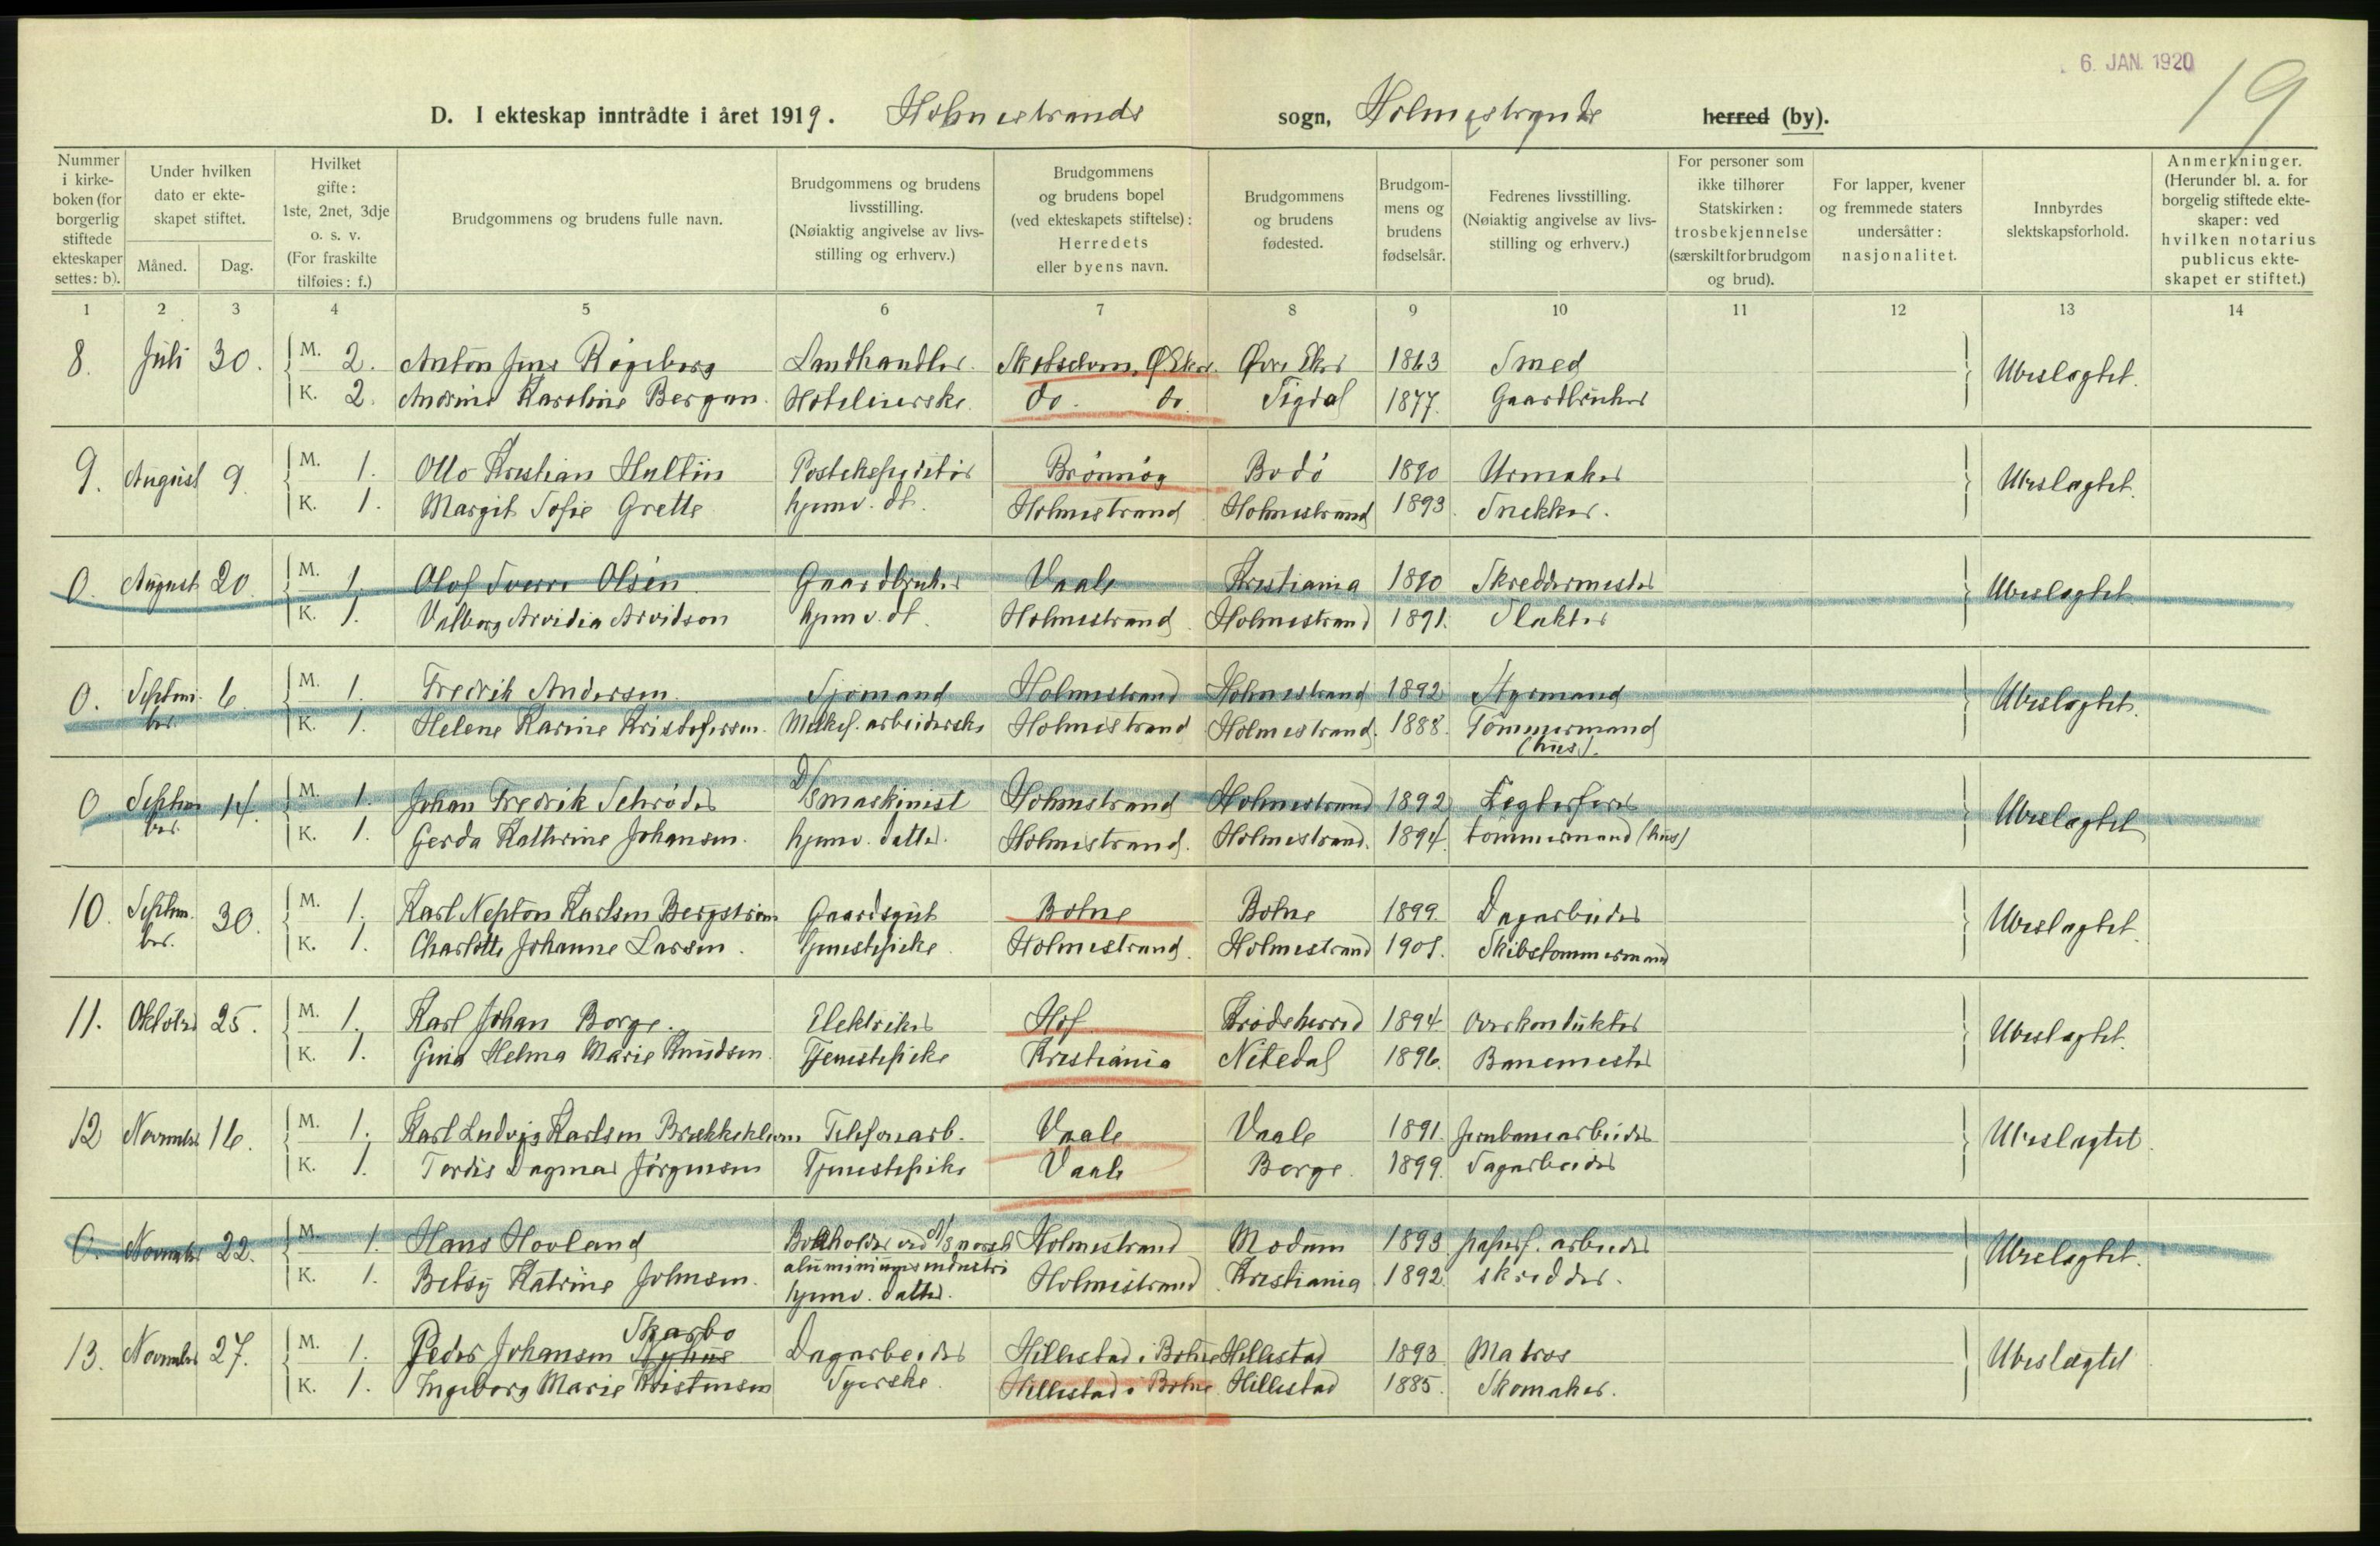 6. JAN. 1920
19
D. I ekteskap inntrådte i året 1919. Holmestrands sogn, Holmestrands herred (by).
Nummer i kirkeboken (for borgerlig stiftede ekteskaper settes: b).
Under hvilken dato er ekteskapet stiftet.
Måned. Dag.
Hvilket gifte: 1ste, 2net, 3dje o. s. v. (For fraskilte tilføies: f.)
Brudgommens og brudens fulle navn.
Brudgommens og brudens livsstilling. (Nøiaktig angivelse av livsstilling og erhverv.)
Brudgommens og brudens bopel (ved ekteskapets stiftelse): Herredets eller byens navn.
Brudgommens og brudens fødested.
Brudgommens og brudens fødselsår.
Fedrenes livsstilling. (Nøiaktig angivelse av livsstilling og erhverv.)
For personer som ikke tilhører Statskirken: trosbekjennelse (særskilt for brudgom og brud).
For lapper, kvener og fremmede staters undersåtter: nasjonalitet.
Innbyrdes slektskapsforhold.
Anmerkninger. (Herunder bl. a. for borgelig stiftede ekteskaper: ved hvilken notarius publicus ekteskapet er stiftet.)
1 2 3 4 5 6 7 8 9 10 11 12 13 14
8. Juli 30. M. 2. Anton Jens Røgeberg Landhandler. Skotselven, Ø Eker. Øvre Eker 1863 Smed Ubeslægtet.
K. 2. Andrine Karoline Bergan. Hotelleierske. do. do. Sigdal 1877. Gaardbruker
9. August 9. M. 1. Otto Kristian Hultin Postekspeditør Brønnøy Bodø 1890 Urmaker Ubeslægtet.
K. 1. Margit Sofie Grette hjemv. dt. Holmestrand Holmestrand 1893. Snekker.
0. August 20. M. 1. Olof Sverre Olsen Gaardbruker Vaale Kristiania 1890 Skreddermester Ubeslægtet.
K. 1. Valborg Arvidia Arvidson hjemv. dt. Holmestrand Holmestrand 1891. Slakter
0. September 6. M. 1. Fredrik Andersen Sjømand Holmestrand Holmestrand 1892 Styrmand Ubeslægtet.
K. 1. Helene Karine Kristofersen. Melkef. arbeiderske Holmestrand Holmestrand. 1888. Tømmermand (hus).
0 September 14. M. 1. Johan Fredrik Schrøder D/S maskinist Holmestrand Holmestrand 1892 Lægterfører Ubeslægtet
K. 1. Gerda Kathrine Johansen. hjemv. datter. Holmestrand. Holmestrand. 1894. tømmermand (hus)
10. September. 30. M. 1. Karl Nepton Karlsen Bergstrøm Gaardsgut Botne Botne 1899. Dagarbeider Ubeslægtet.
K. 1. Charlotte Johanne Larsen. tjenestepike. Holmestrand. Holmestrand 1901. Skibstømmermand
11. Oktober 25. M. 1. Karl Johan Borge. Elektriker Hof Krødsherred 1894 Overkonduktør Ubeslægtet.
K. 1. Gina Helma Marie Knudsen. Tjenestepike Kristiania Nitedal 1896. Banemester
12 November 16. M. 1. Karl Ludvig Karlsen Brækkeklem Telefonarb. Vaale Vaale 1891. Jernbanearbeider Ubeslægtet.
K. 1. Tordis Dagmar Jørgensen Tjenestepike Vaale Borge. 1899. Sagarbeider
0. November 22. M. 1. Hans Hovland Bokholder ved A/S norsk aluminiumsindustri Holmestrand Modum 1893 papirf. arbeider Ubeslægtet.
K. 1. Betsy Katrine Johnsen. hjemv. datter. Holmestrand Kristiania 1892. skredder.
13. November 27. M. 1. Peder Johansen Nyhus Skarbo Dagarbeider Hillestad i Botne Hillestad 1893 Matros Ubeslægtet
K. 1. Ingeborg Marie Kristensen Syerske. Hillestad i Botne. Hillestad 1885. Skomaker.